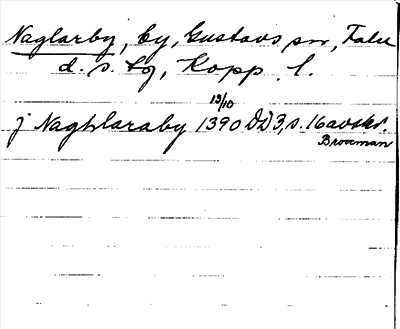 Naglarby, by, Gustavs sn, Falu
d. s. tg, Kopp. l.
13/10
j Naghlaraby 1390 DD 3, s. 16 avskr.
Brooman